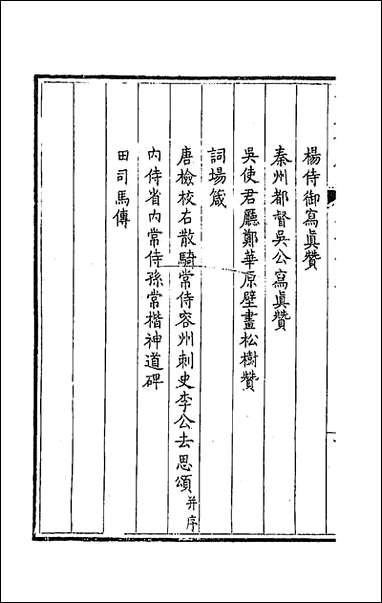 楊侍御寫真贊
秦州都督吳公寫真贊
吳使君廳鄭華原壁畫松樹贊
詞場箴
唐檢校右散騎常侍容州刺史李公去思頌并序
內侍省內常侍孫常楷神道碑
田司馬傳